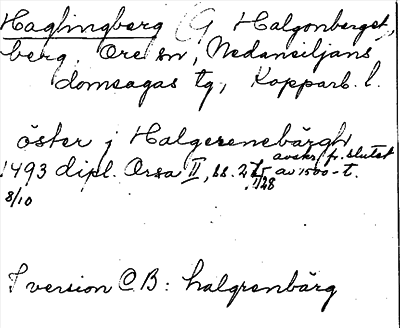 Haglingberg (G Halgonberget,
berg, Ore sn, Nedansiljans
domsagas tg, Kopparb. l.
öster j Halgerenebärgh
1493 dipl. Orsa II, bl. avskr. fr. slutet av 1500-t.
8/10 1/28
I version C.B: halgrenbärg